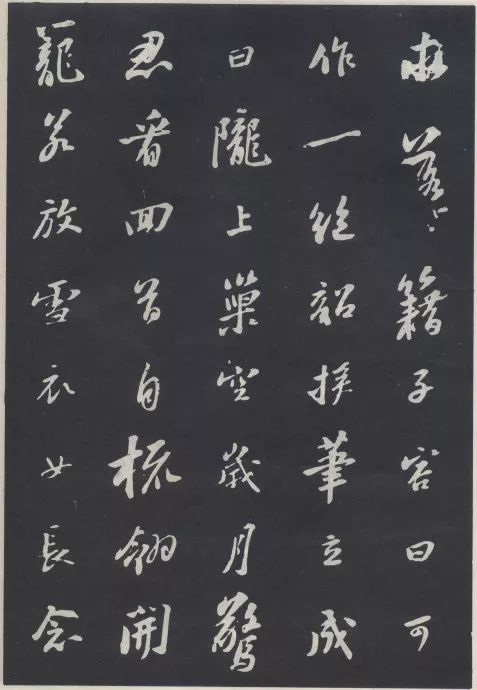 求落籍子容曰可
作一絶韶援筆立成
曰隴上巢空歲月驚
忍看回首自梳翎開
籠若放雪衣女長念